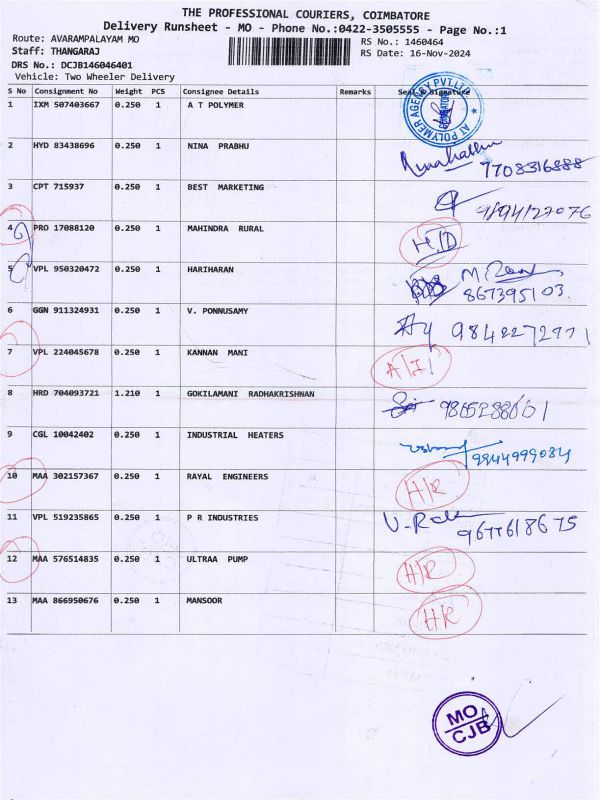 THE PROFESSIONAL COURIERS, COIMBATORE
Delivery Runsheet - MO - Phone No.:0422-3505555 - Page No.:1
Route: AVARAMPALAYAM MO RS No.: 1460464
Staff: THANGARAJ RS Date: 16-Nov-2024
DRS No.: DCJB146046401
Vehicle: Two Wheeler Delivery
S No Consignment No Weight PCS Consignee Details Remarks Seal & Signature
1 IXM 507403667 0.250 1 A T POLYMER
AT POLYMER AGENCY PVT.LTD COIMBATORE
2 HYD 83438696 0.250 1 NINA PRABHU
7708316888
3 CPT 715937 0.250 1 BEST MARKETING
4 PRO 17088120 0.250 1 MAHINDRA RURAL
H/D
5 VPL 950320472 0.250 1 HARIHARAN
867395103.
6 GGN 911324931 0.250 1 V. PONNUSAMY
7 VPL 224045678 0.250 1 KANNAN MANI
A/I
8 HRD 704093721 1.210 1 GOKILAMANI RADHAKRISHNAN
9 CGL 10042402 0.250 1 INDUSTRIAL HEATERS
9944999084
10 MAA 302157367 0.250 1 RAYAL ENGINEERS
H/R
11 VPL 519235865 0.250 1 P R INDUSTRIES
9677618675
12 MAA 576514835 0.250 1 ULTRAA PUMP
H/R
13 MAA 866950676 0.250 1 MANSOOR
HR
MO
CJB